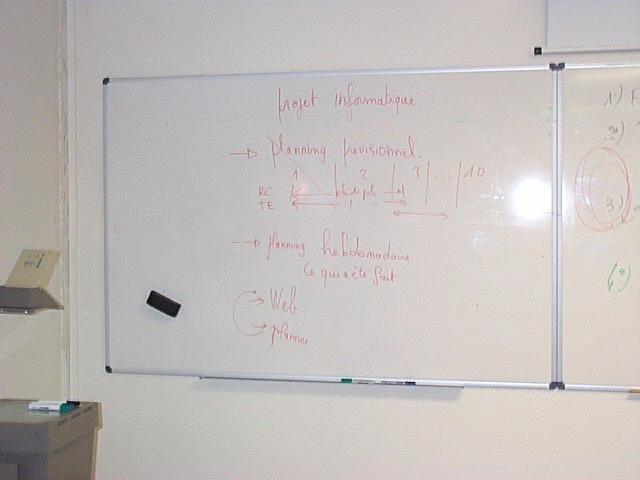 projet informatique
→ planning previsionnel.
1 2 3 ... 10
RC
TE
→ planning hebdomadaire
Ce qui a été fait
→ Web
→ planner
1) F
2)
3)